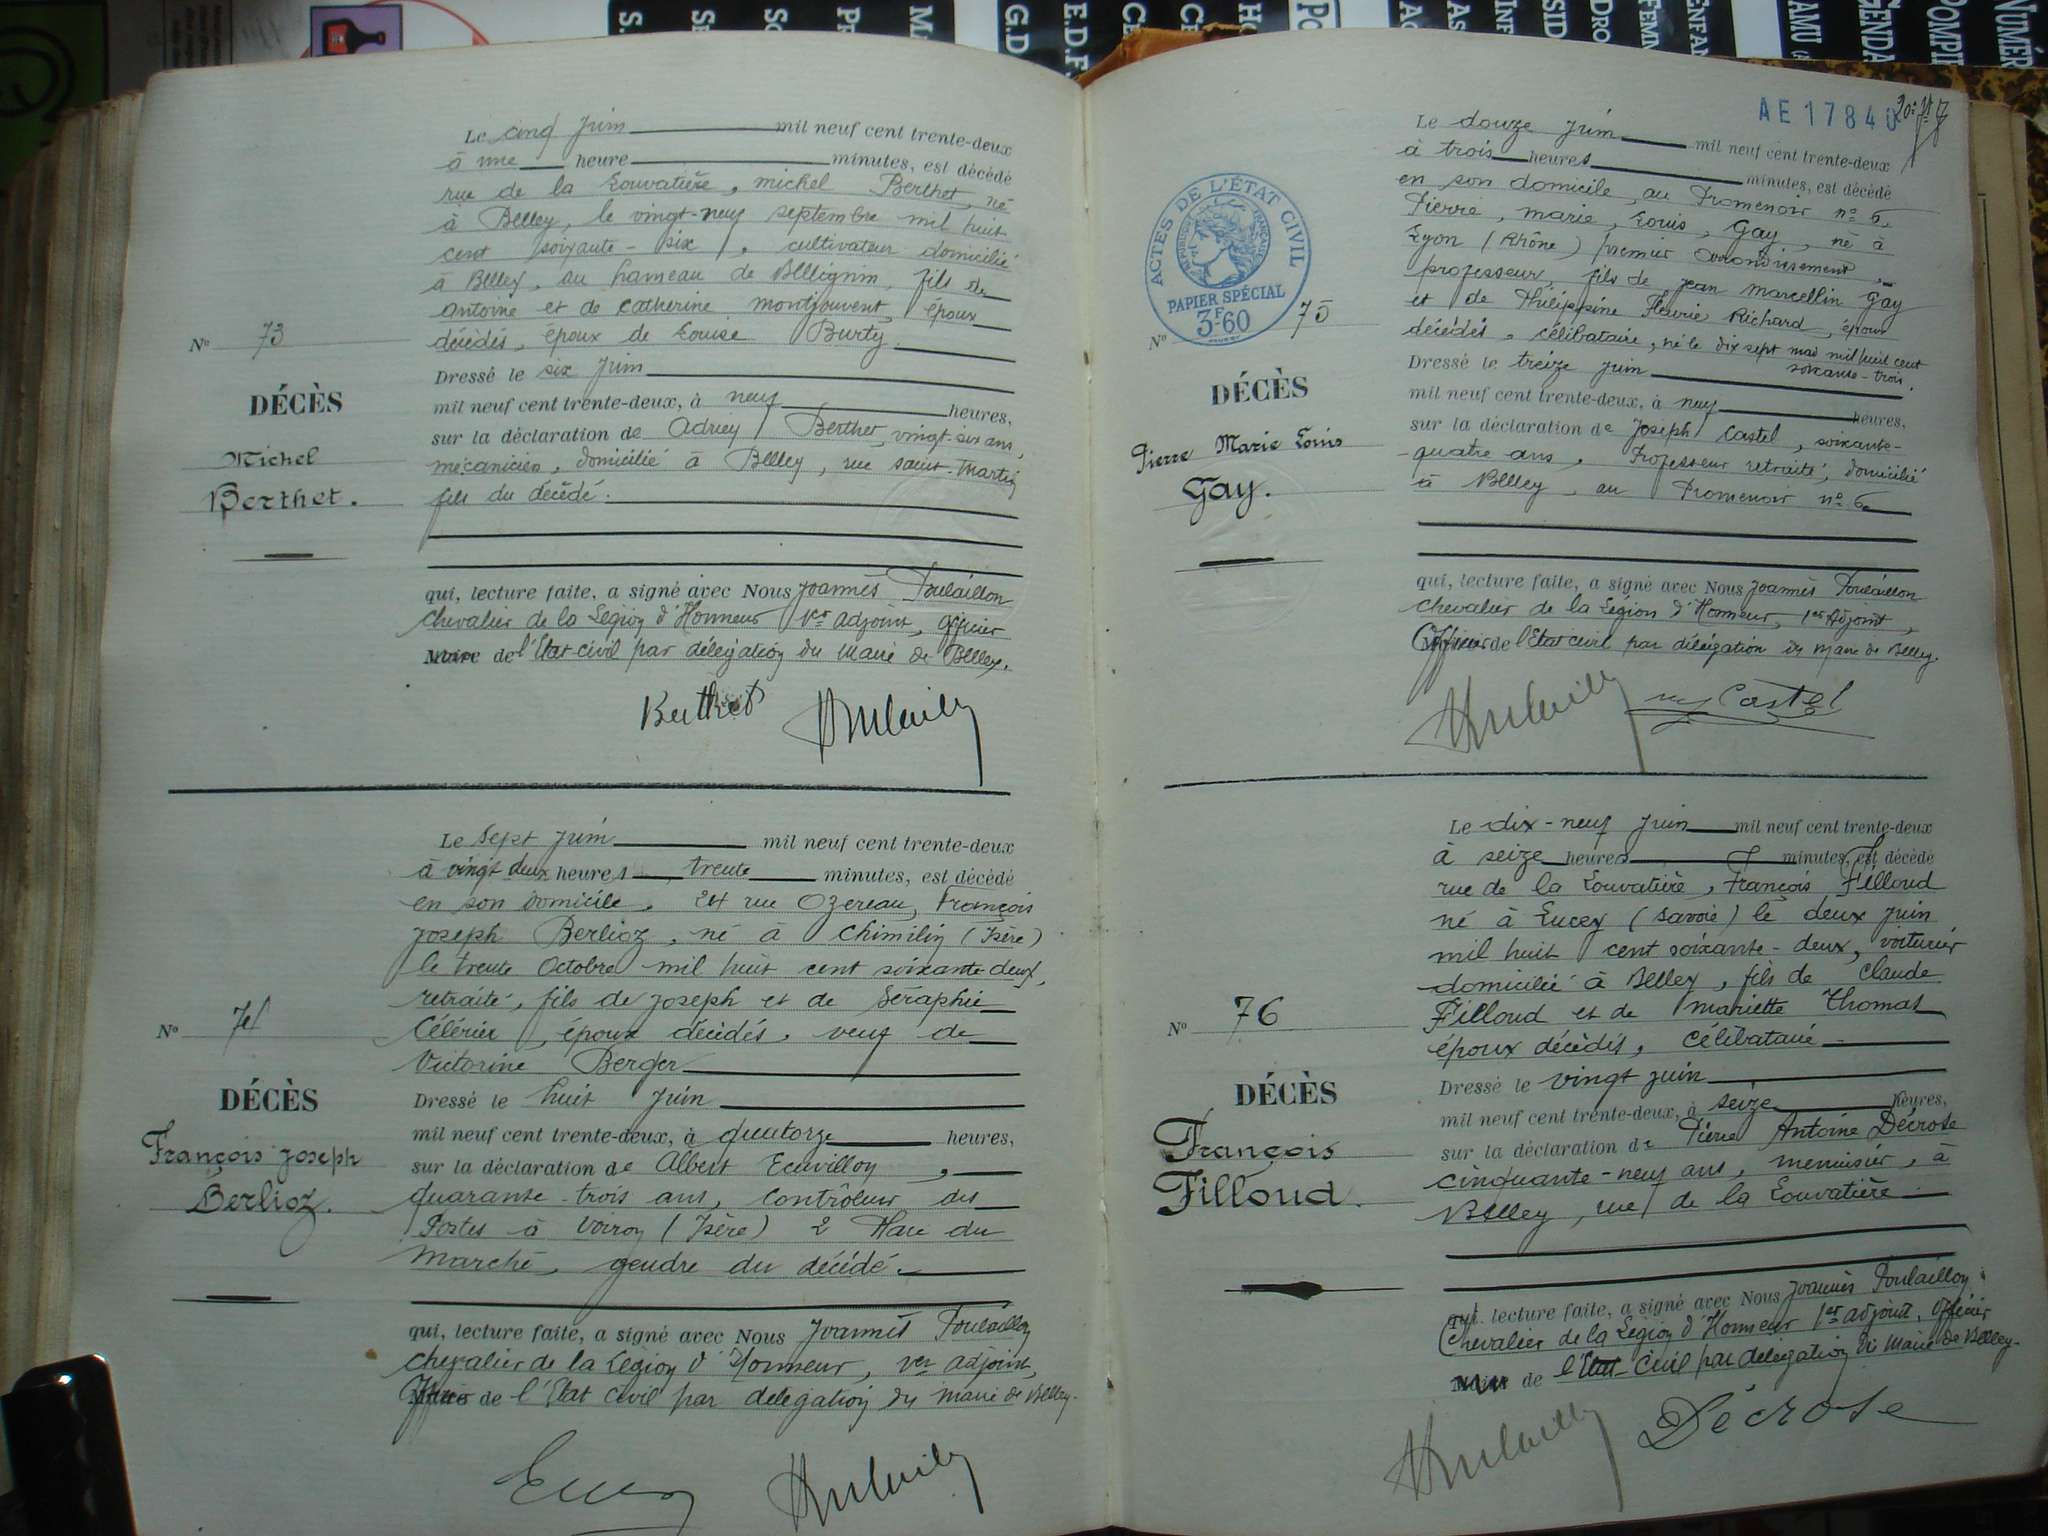 S.
Se
So
PR
M
G.D
E.D.F.
CE
CE
HO
PO
AC
AS
INF
SID
DRO
FEMM
ENFAN
AMU (
GENDA
POMPIE
NUMÉR
Le cinq juin mil neuf cent trente-deux
à une heure minutes, est décédé
rue de la Louvatière, michel Berthet, né
à Belley, le vingt-neuf septembre mil huit
cent soixante-six, cultivateur domicilié
à Belley, au hameau de Billignin, fils de
Antoine et de Catherine montjouvent, époux
décédés, époux de Louise Burty.
Dressé le six juin
mil neuf cent trente-deux, à neuf heures,
sur la déclaration de Adrien Berthet, vingt-six ans,
mécanicien, domicilié à Belley, rue saint-Martin
fils du décédé.
qui, lecture faite, a signé avec Nous Joannès Poulaillon
Chevalier de la Légion d'Honneur 1er adjoint, officier
Maire de l'Etat civil par délégation du Maire de Belley.
Berthet
Nº 73
DÉCÈS
Michel
Berthet.
Le Sept juin mil neuf cent trente-deux
à vingt deux heures trente minutes, est décédé
en son domicile, 24 rue Ozereau, François
Joseph Berlioz, né à Chimilin (Isère)
le trente Octobre mil huit cent soixante-deux,
retraité, fils de Joseph et de Séraphie
Célérier, époux décédés, veuf de
Victorine Berger
Dressé le huit juin
mil neuf cent trente-deux, à quatorze heures,
sur la déclaration de Albert Ecuvillon,
quarante-trois ans, Contrôleur des
Postes à Voiron (Isère) 2 Place du
Marché, gendre du décédé.
qui, lecture faite, a signé avec Nous Joannès Poulaillon
chevalier de la Légion d'Honneur, 1er adjoint,
Officier de l'Etat civil par délégation du maire de Belley.
Nº 74
DÉCÈS
François Joseph
Berlioz.
AE 17840
ACTES DE L'ÉTAT CIVIL
RÉPUBLIQUE FRANÇAISE
PAPIER SPÉCIAL
3F60
Le douze juin mil neuf cent trente-deux
à trois heures minutes, est décédé
en son domicile, au Promenoir nº 6,
Pierre, marie, Louis, Gay, né à
Lyon (Rhône) premier arrondissement,
professeur, fils de Jean Marcellin Gay
et de Philippine Fleurie Richard, époux
décédés, célibataire, né le dix sept mai mil huit cent
soixante-trois.
Dressé le treize juin
mil neuf cent trente-deux, à neuf heures,
sur la déclaration de Joseph Castel, soixante-
quatre ans, Professeur retraité, domicilié
à Belley, au Promenoir nº 6
qui, lecture faite, a signé avec Nous Joannès Poulaillon
Chevalier de la Légion d'Honneur, 1er Adjoint,
Officier de l'Etat civil par délégation du Maire de Belley.
Castel
Nº 75
DÉCÈS
Pierre Marie Louis
Gay.
Le dix-neuf juin mil neuf cent trente-deux
à seize heures minutes, est décédé
rue de la Louvatière, François Filloud
né à Lucey (Savoie) le deux juin
mil huit cent soixante-deux, voiturier
domicilié à Belley, fils de Claude
Filloud et de Mariette Thomas
époux décédés, célibataire
Dressé le vingt juin
mil neuf cent trente-deux, à seize heures,
sur la déclaration de Pierre Antoine Décrose
cinquante-neuf ans, menuisier, à
Belley, rue de la Louvatière
qui, lecture faite, a signé avec Nous Joannès Poulaillon
Chevalier de la Légion d'Honneur 1er adjoint, officier
Maire de l'Etat Civil par délégation du Maire de Belley.
Décrose
Nº 76
DÉCÈS
François
Filloud.